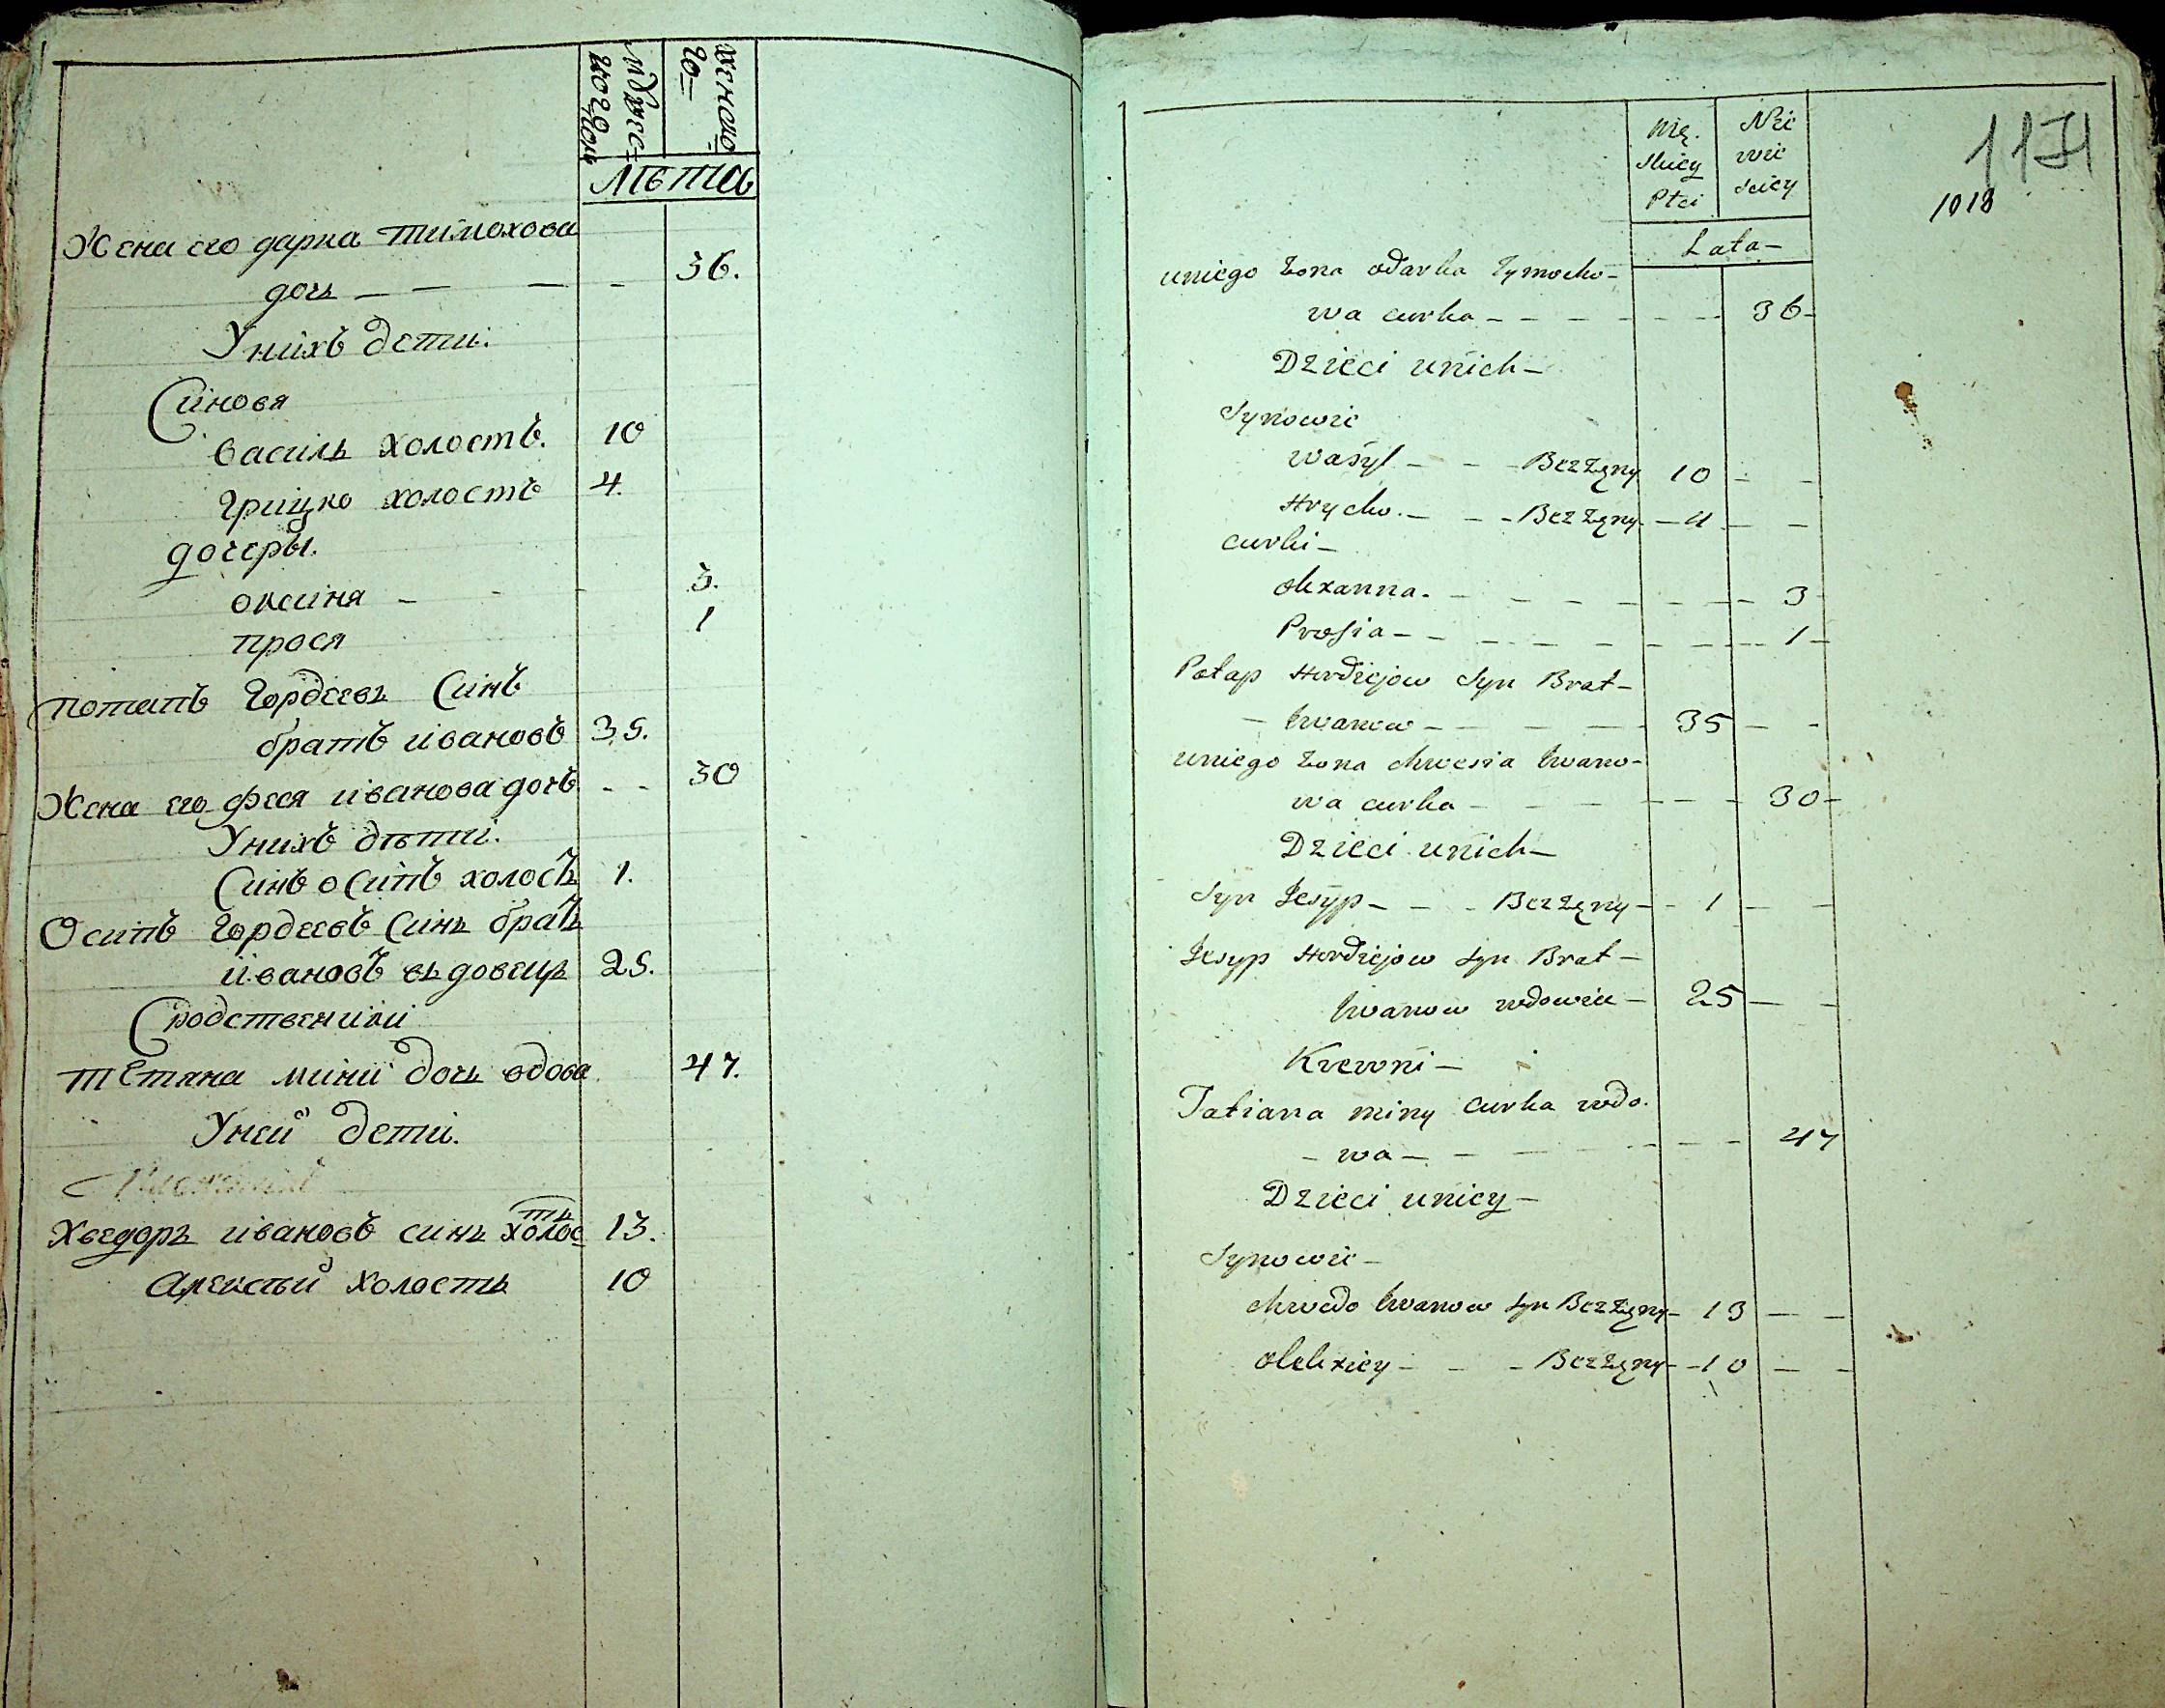 мужес-
кого
полу
женско
го
лѣта
Жена его дарка тимохова
дочь - - - - 36.
Унихъ дети.
Синовя
василь холостъ. 10
грицко холостъ 4.
дочеры.
оксиня - - - 3.
прося 1
потапъ Гордеевъ Синъ
братъ ивановъ 35.
Жена его феся иванова дочъ - - 30
Унихъ дѣти.
Синъ осипъ холостъ 1.
Осипъ Гордеевъ Синъ братъ
ивановъ вьдовець 25.
Сродственики
тетяна мини дочь вдова 47.
Уней дети.
Хведоръ ивановъ синь холостъ 13.
Алексѣй холость 10
Mę.
skiey
Płci
Nie
wie
sciey
Lata-
1171
1018
uniego żona odarka Tymocho-
wa curka - - - - 36-
Dzieci unich-
Synowie
wasyl - - - Bezżęny 10 - -
Hrycko. - - - Bezżęny - 4 - -
curki-
olexanna. - - - - 3-
Prosia - - - - - 1-
Potap Hordiejow Syn Brat-
- Iwanow - - - - 35 - -
uniego żona chwesia Iwano-
wa curka - - - - 30-
Dzieci unich-
Syn Jesyp - - - Bezżęny - - 1 - -
Jesyp Hordiejow Syn Brat-
Iwanow wdowiec - 25 - -
Krewni-
Tatiana miny curka wdo.
- wa - - - - 47
Dzieci uniey-
Synowie-
chwedo Iwanow Syn Bezżęny - 13 - -
olekxiey - - - Bezżęny - - 10 - -